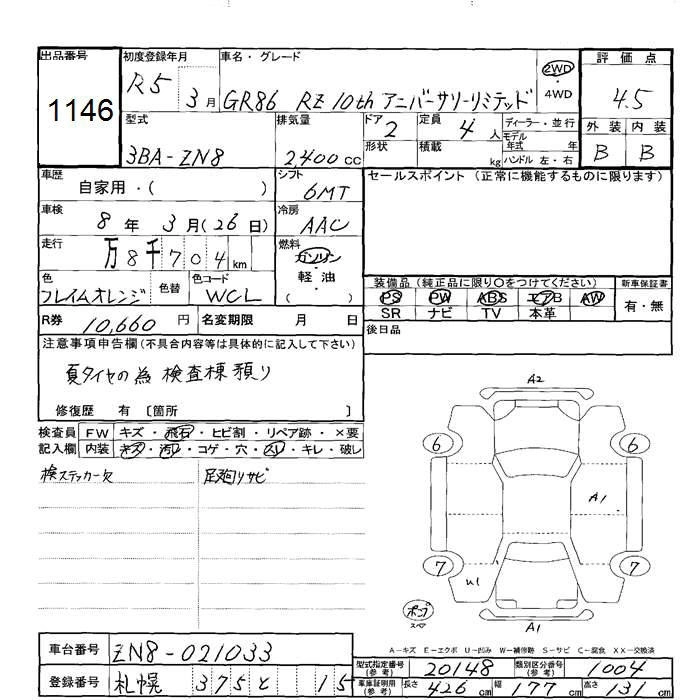 出品番号
1146
初度登録年月
R5 3月
車名・グレード
GR86 RZ 10th アニバーサリーリミテッド
2WD
・
4WD
評価点
4.5
外装 内装
B B
型式
3BA-ZN8
排気量
2,400cc
ドア
2
形状
定員
4人
積載
kg
ディーラー・並行
モデル
年式 年
ハンドル 左・右
車歴
自家用・( )
シフト
6MT
車検
8年 3月(26日)
冷房
AAC
走行
万8千704km
燃料
ガソリン
・
軽・油
( )
色
フレイムオレンジ
色替
色コード
WCL
R券 10,660円
名変期限 月 日
セールスポイント(正常に機能するものに限ります)
装備品(純正品に限り〇をつけてください)
PS PW ABS エアB AW
SR ナビ TV 本革
新車保証書
有・無
後日品
注意事項申告欄(不具合内容等は具体的に記入して下さい)
夏タイヤの為 検査棟預り
修復歴 有〔箇所 〕
検査員
記入欄
FW キズ・飛石・ヒビ割・リペア跡・×要
内装 キズ・汚れ・コゲ・穴・スレ・キレ・破レ
検ステッカー欠
足廻りサビ
A2
6
6
A1
7
7
U1
ポンプ
スペア
A1
A-キズ E-エクボ U-凹み W-補修跡 S-サビ C-腐食 XX-交換済
車台番号
ZN8-021033
登録番号
札幌 375 と 15
型式指定番号
(参考)
20148
類別区分番号
(参考)
1004
車庫証明用
(参考)
長さ 426cm 幅 177cm 高さ 131cm